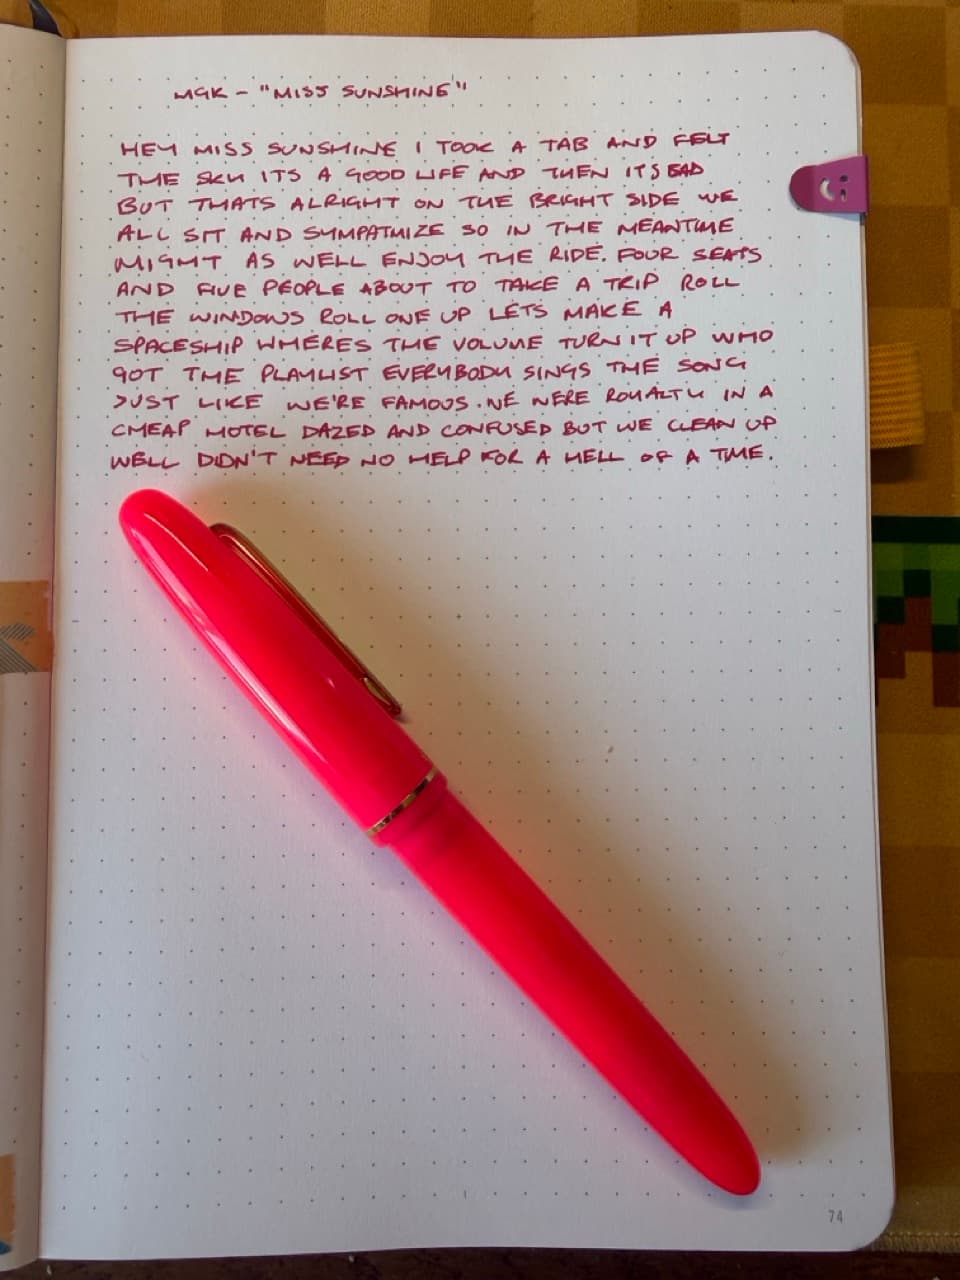 MGK - "MISS SUNSHINE"
HEY MISS SUNSHINE I TOOK A TAB AND FELT
THE SKY ITS A GOOD LIFE AND THEN ITS BAD
BUT THATS ALRIGHT ON THE BRIGHT SIDE WE
ALL SIT AND SYMPATHIZE SO IN THE MEANTIME
MIGHT AS WELL ENJOY THE RIDE. FOUR SEATS
AND FIVE PEOPLE ABOUT TO TAKE A TRIP ROLL
THE WINDOWS ROLL ONE UP LETS MAKE A
SPACESHIP WHERES THE VOLUME TURN IT UP WHO
GOT THE PLAYLIST EVERYBODY SINGS THE SONG
JUST LIKE WE'RE FAMOUS. WE WERE ROYALTY IN A
CHEAP MOTEL DAZED AND CONFUSED BUT WE CLEAN UP
WELL DIDN'T NEED NO HELP FOR A HELL OF A TIME.
74